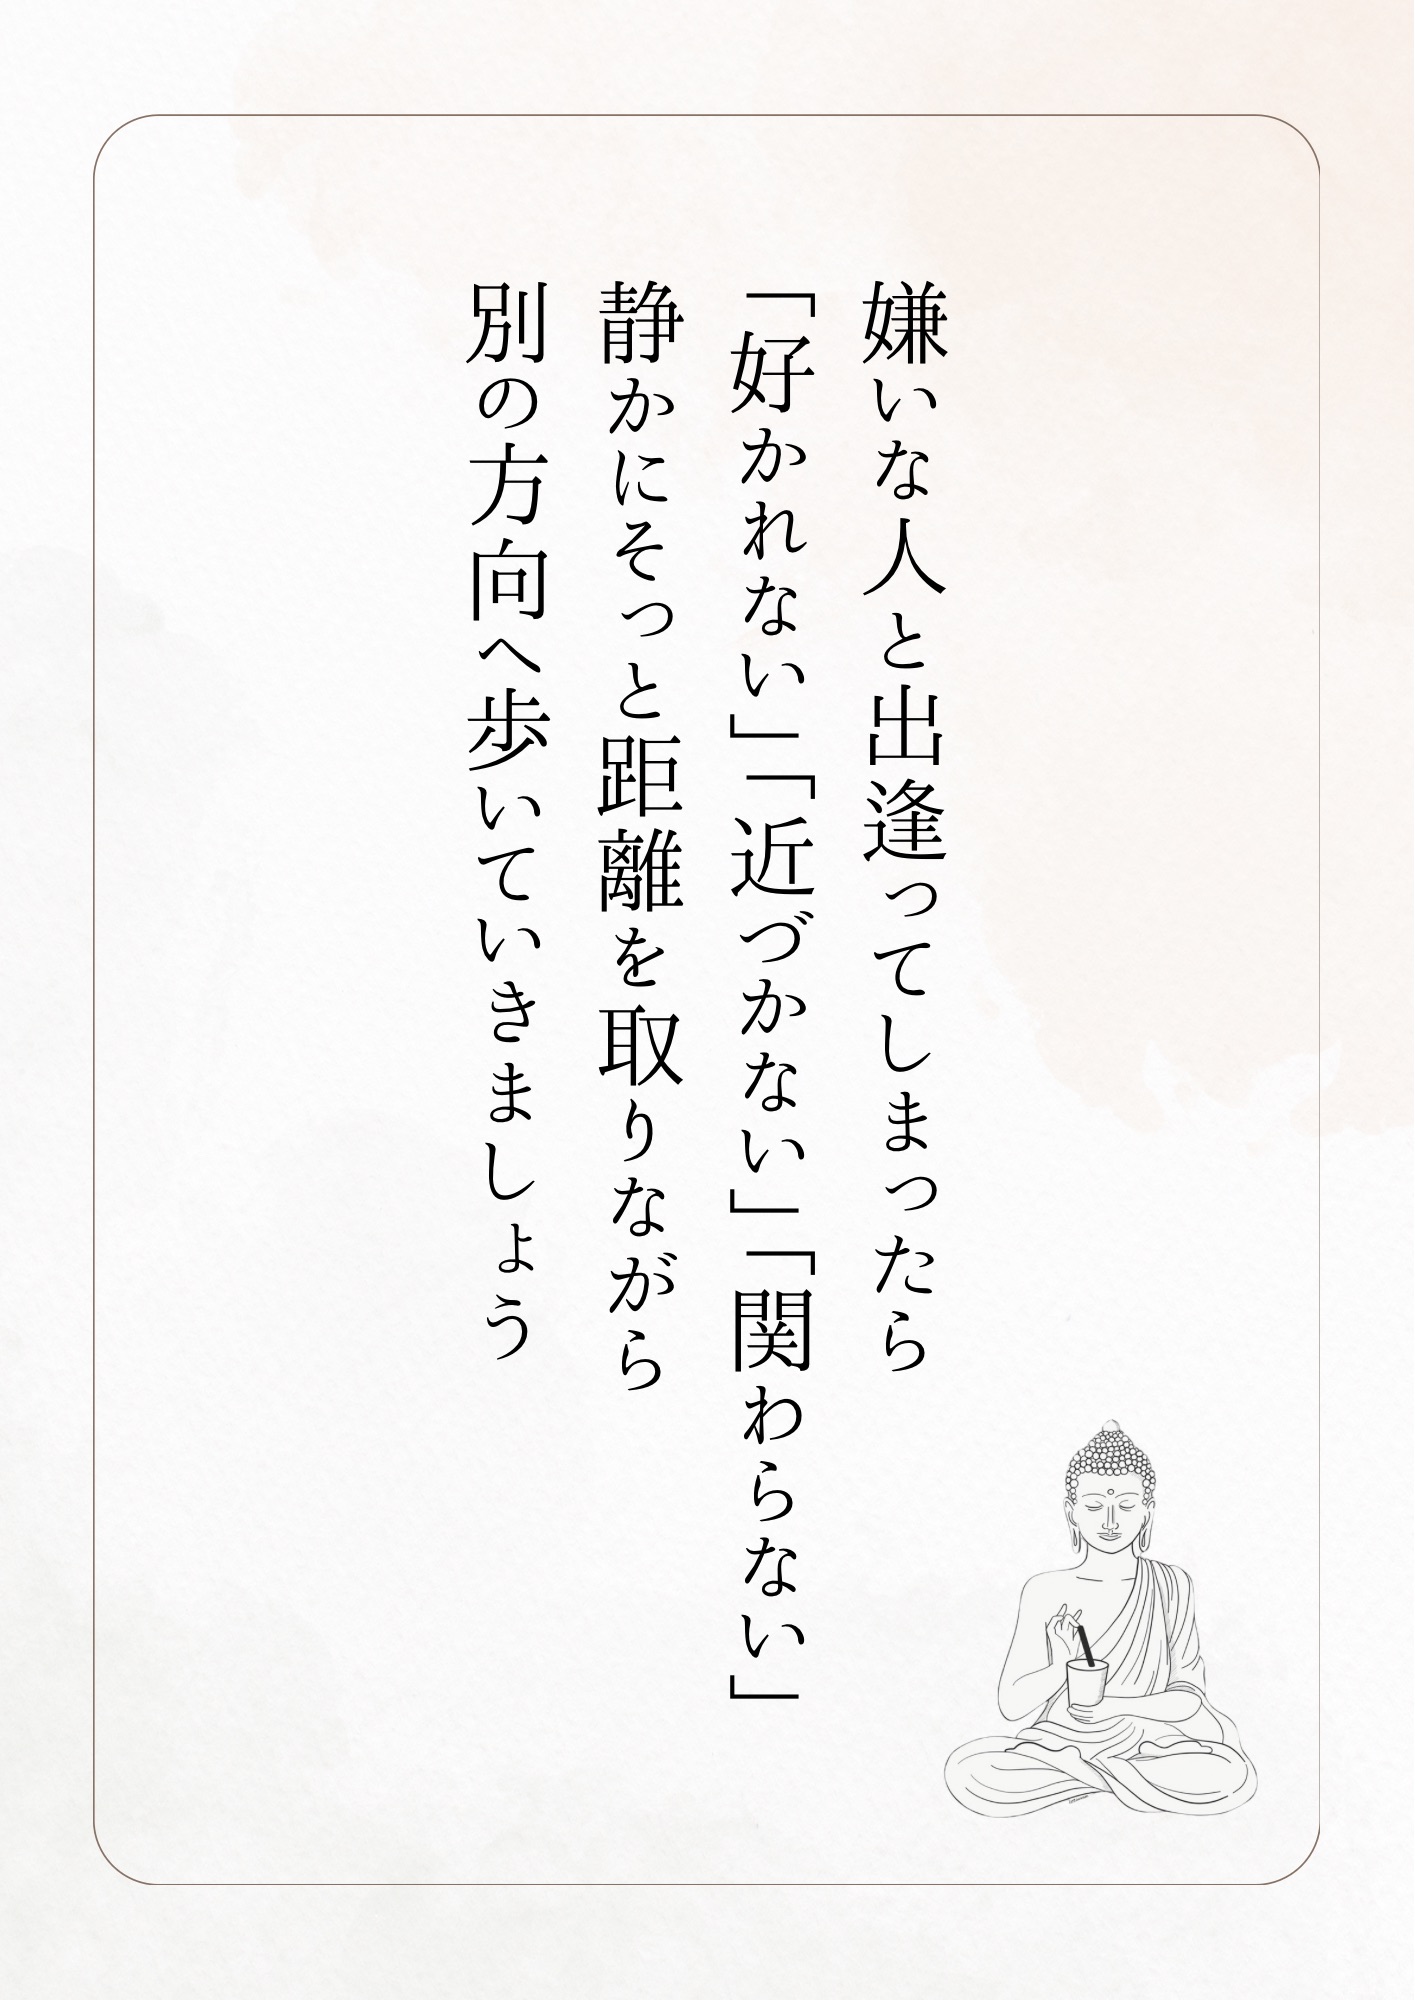 嫌いな人と出逢ってしまったら
「好かれない」「近づかない」「関わらない」
静かにそっと距離を取りながら
別の方向へ歩いていきましょう